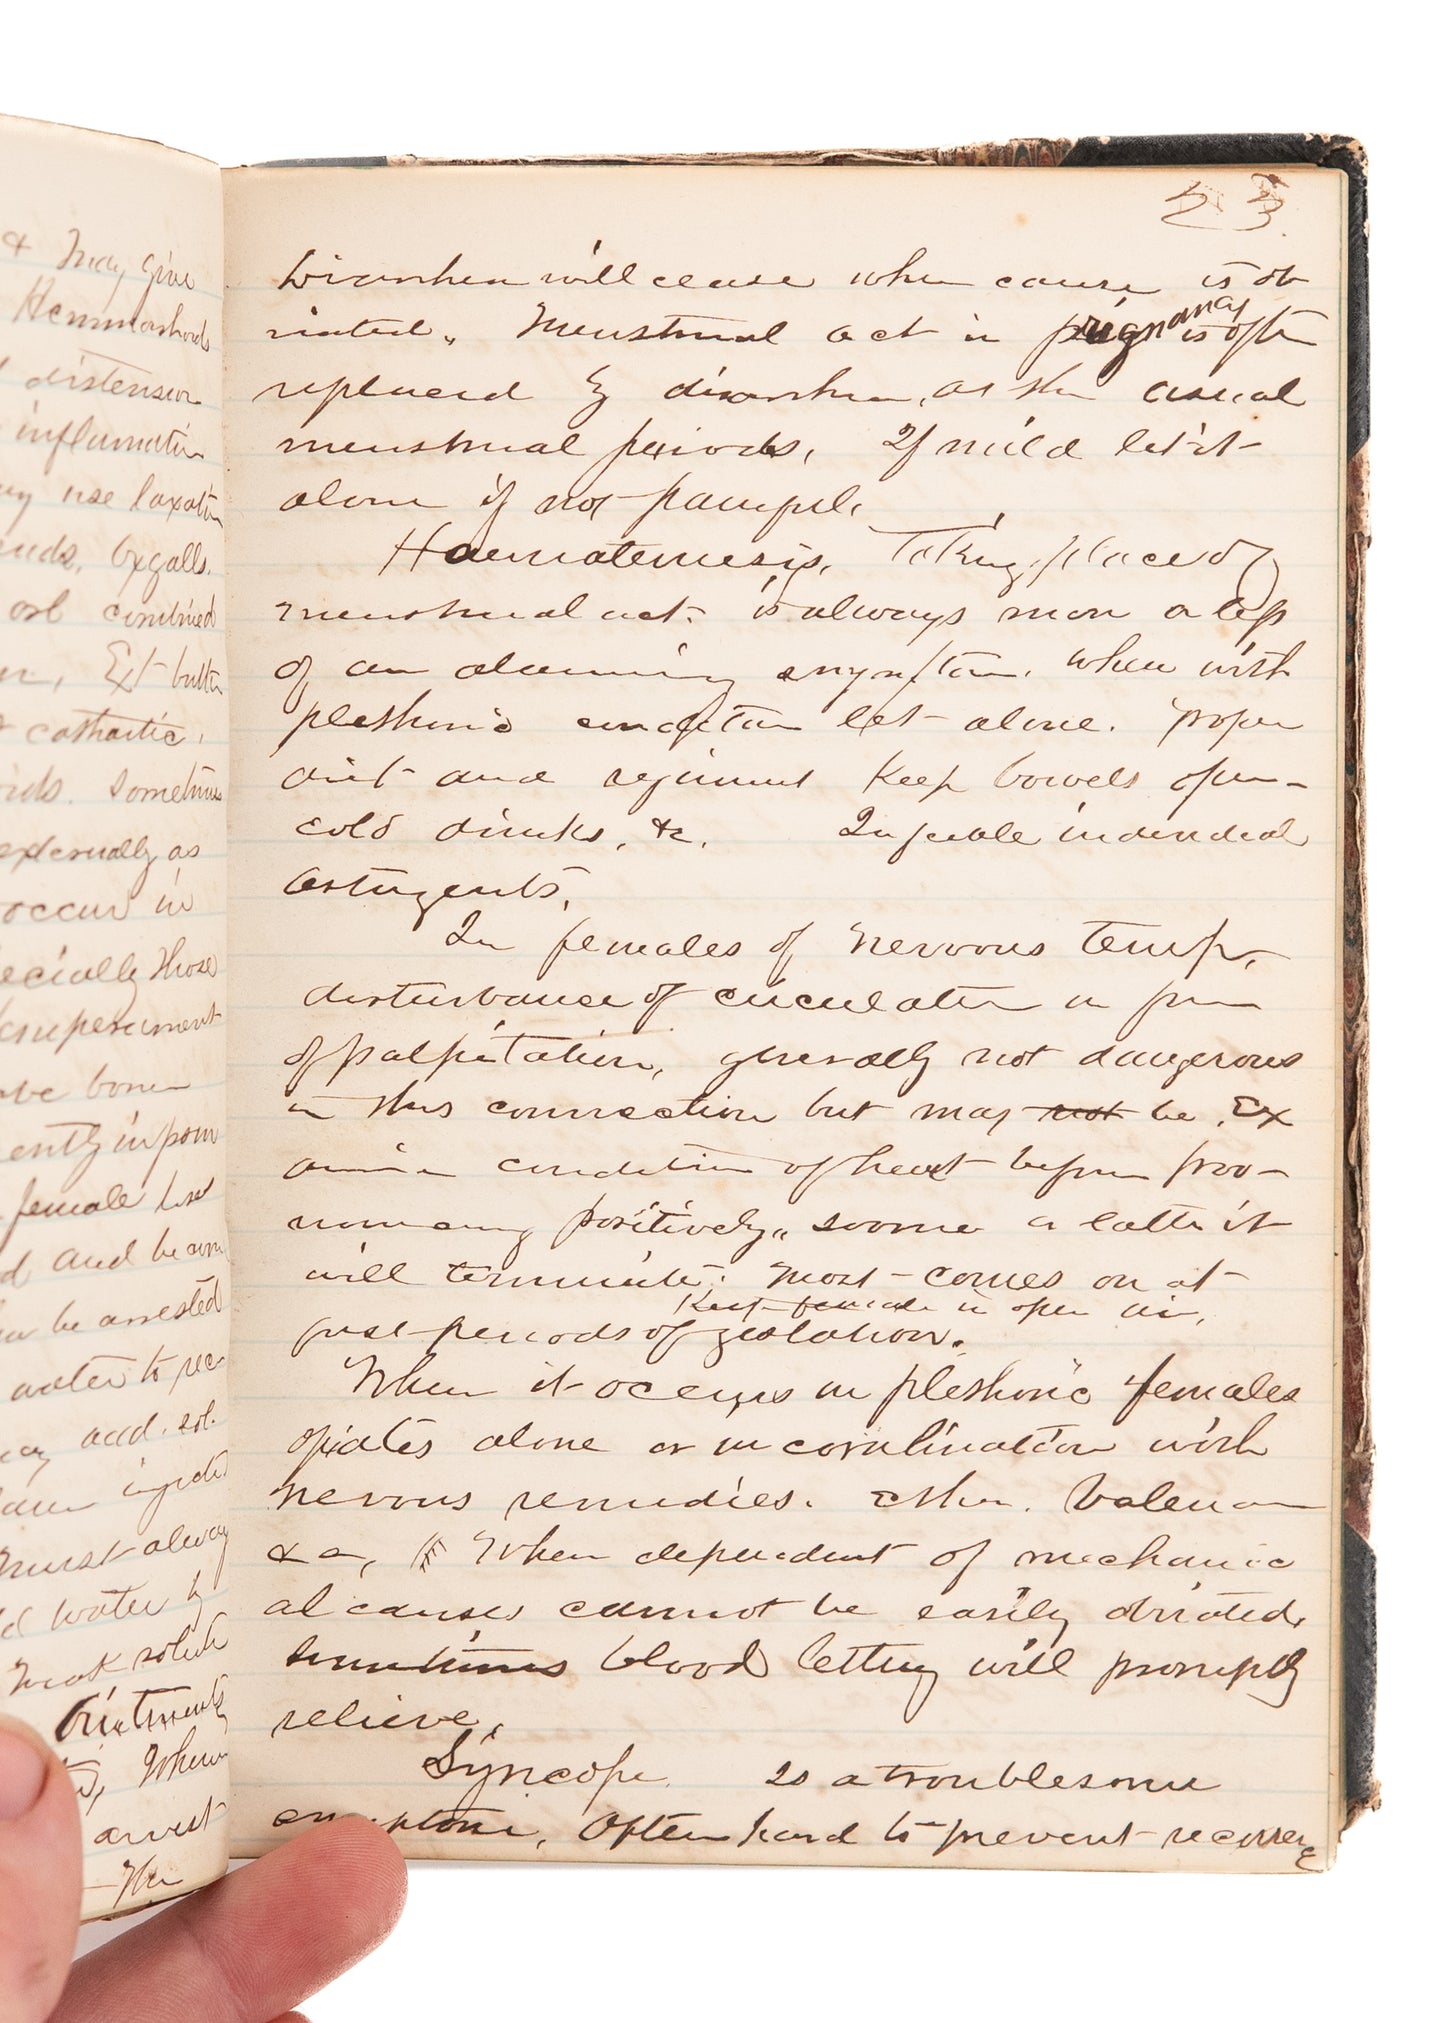 & May give
Hemmorhoids
distension
inflamatin
use laxative
oxgalls.
combined
Ext butter
cathartic,
sometimes
externally as
occur in
especially those
temperament
bone
ently in pour
female lose
and become
be arrested
water to rec
acid. sol.
ingredi
must alway
water by
weak solute
Ointments
When
arrest
The
23.
Diarrhea will cease when cause is ob
viated. Menstrual act in pregnancy is often
replaced by diarrhea, at the usual
menstrual periods, If mild let it
alone if not painful.
Haematemesis, Taking place of
menstrual act. is always more or less
of an alarming symptom. When with
plethoric condition let alone. proper
diet and regiment Keep bowels open-
cold drinks, &c. In feeble individual
astringents,
In females of nervous temp,
disturbance of circulation in form
of palpitation, generally not dangerous
in this connection but may not be, Ex
amin condition of heart before pro-
nouncing positively, sooner or later it
will terminate. Most comes on at
Keep female in open air,
first periods of gestation.
When it occurs in plethoric females
opiates alone or in combination with
nervous remedies. Ether. Valerian
&c, When dependent of mechanic
al causes cannot be easily obviated,
sometimes blood letting will promptly
relieve,
Syncope is a troublesome
symptom, Often hard to prevent recurrenc